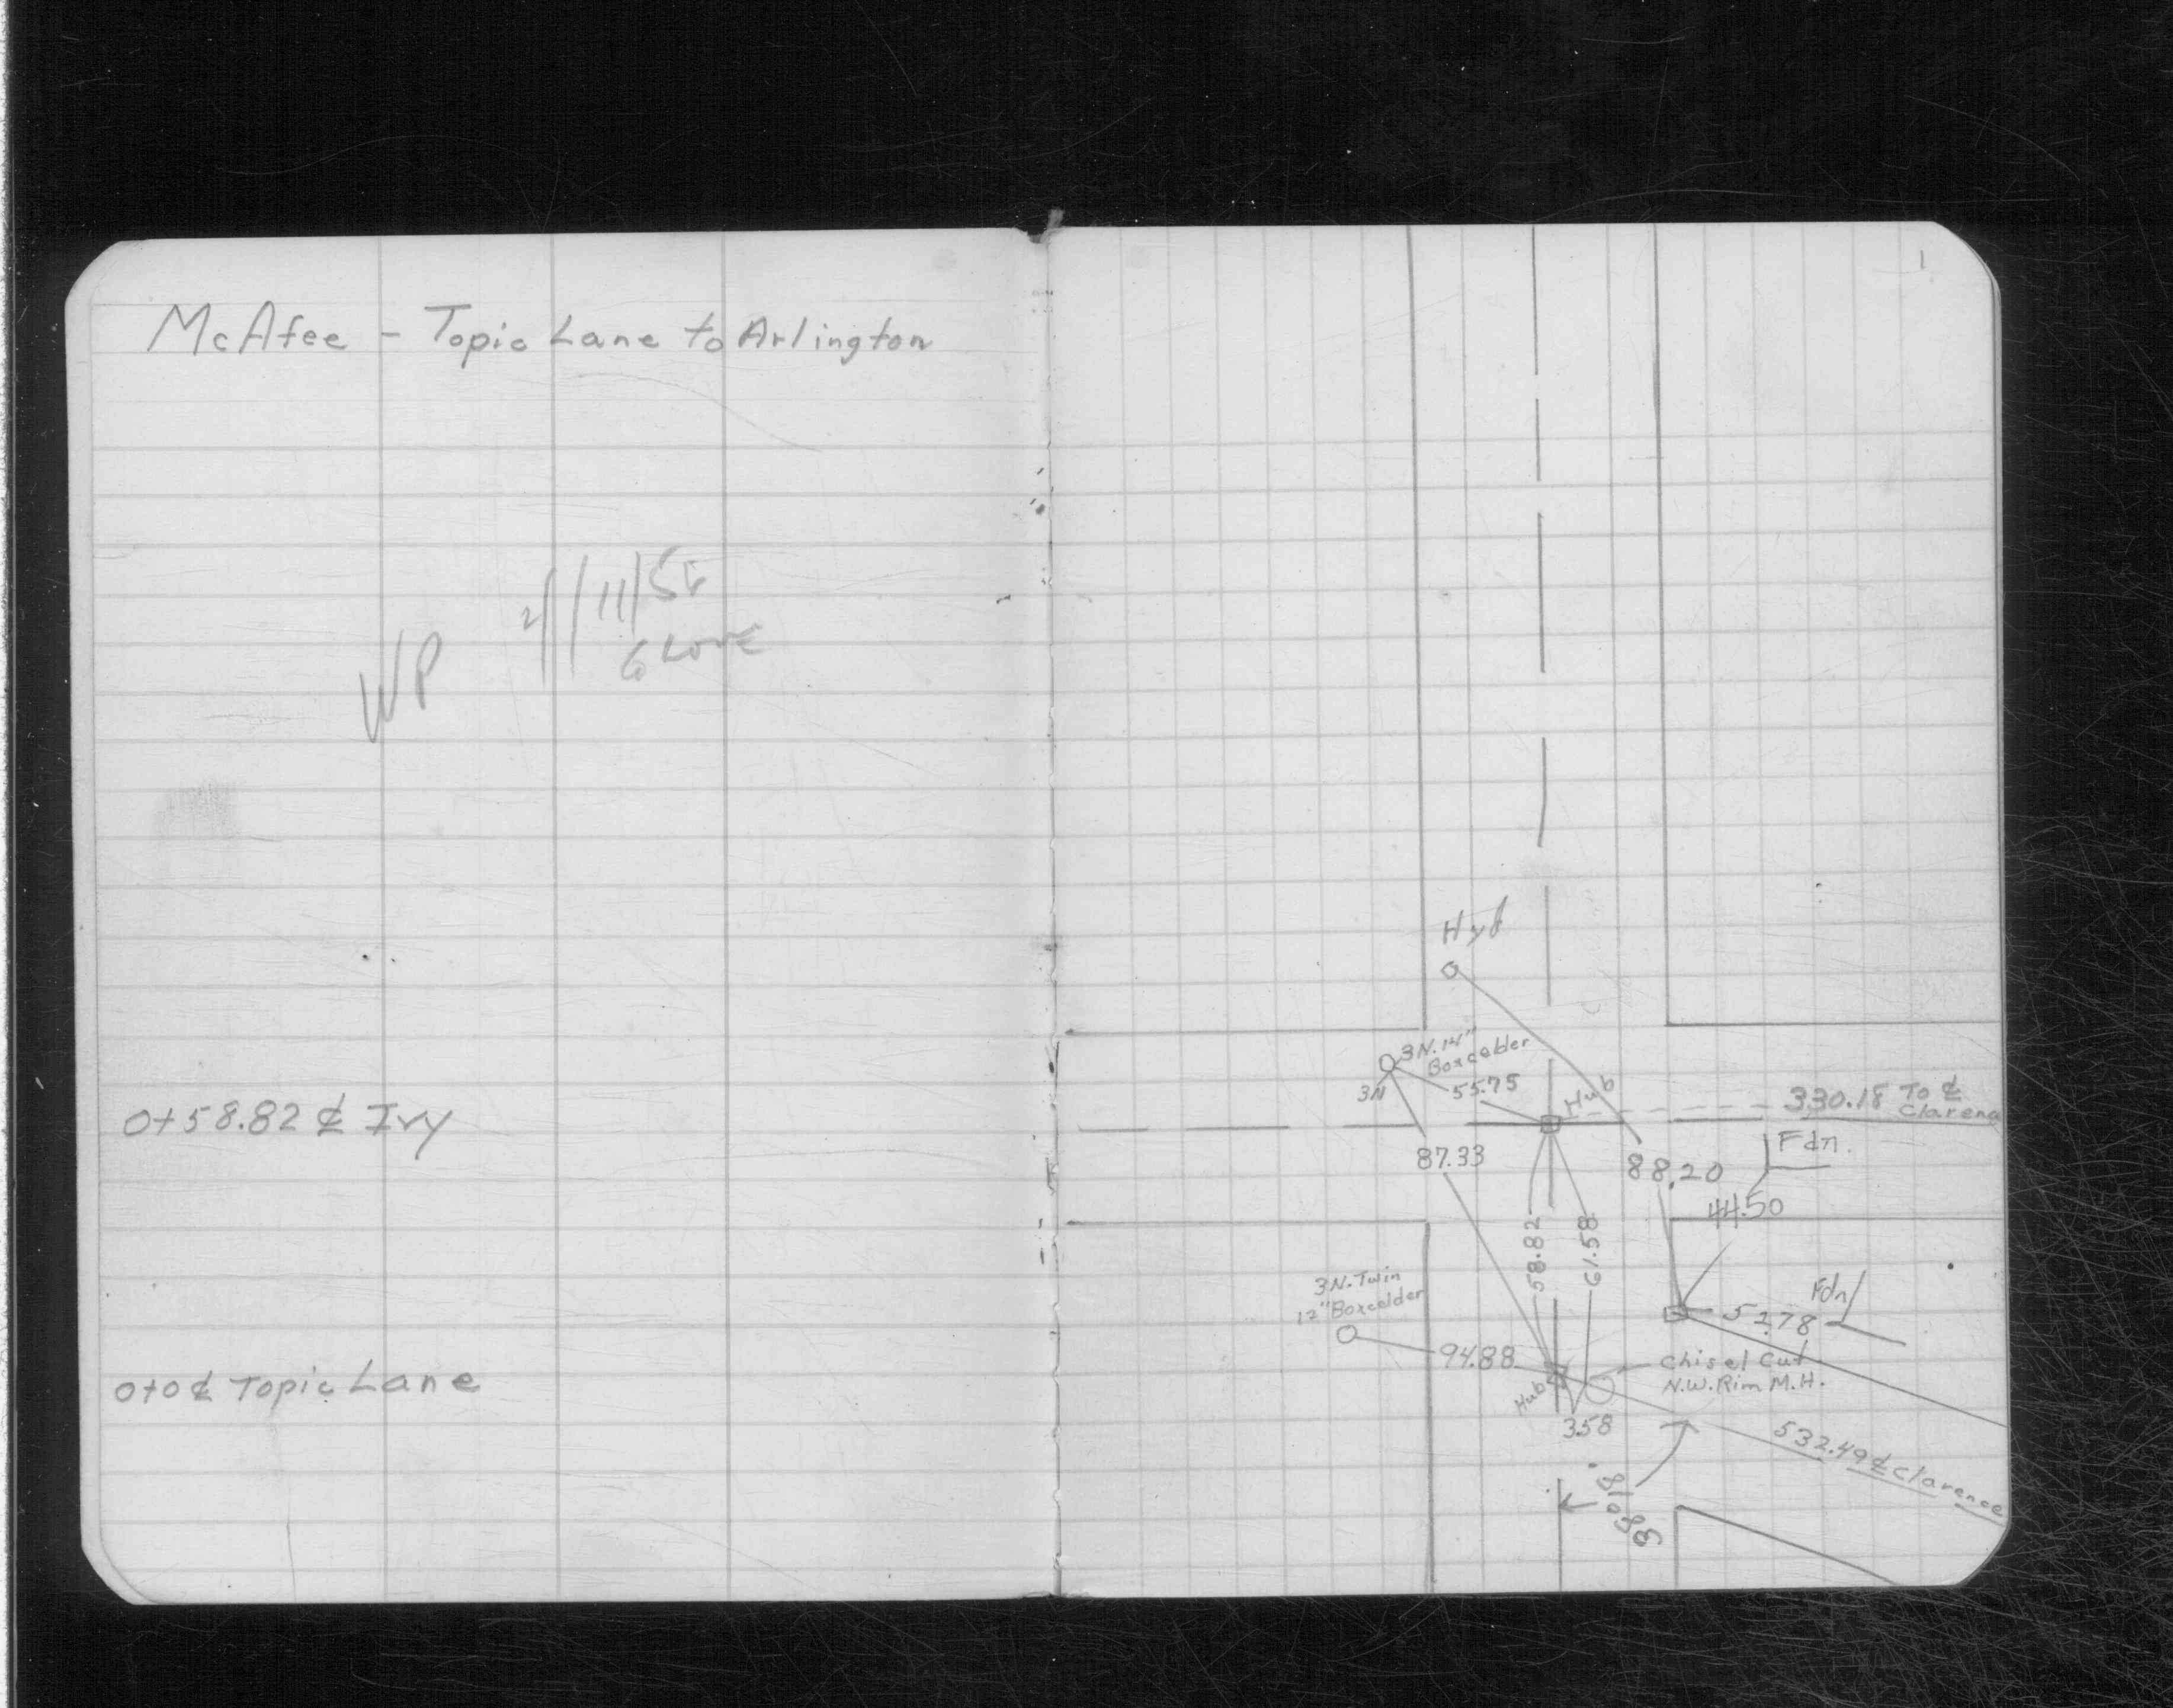 McAfee - Topic Lane to Arlington
/11/56
WP
0+58.82 ℄ Ivy
0+0 ℄ Topic Lane
1
Hyd
3N.14"
Boxcelder
3N
55.75
Hub
330.18 To ℄
Clarence
Fdn.
87.33
88.20
44.50
58.82
61.58
3N. Twin
12" Boxcelder
Fdn
52.78
94.88
Chisel Cut
N.W. Rim M.H.
Hub
3.58
532.49 ℄ Clarence